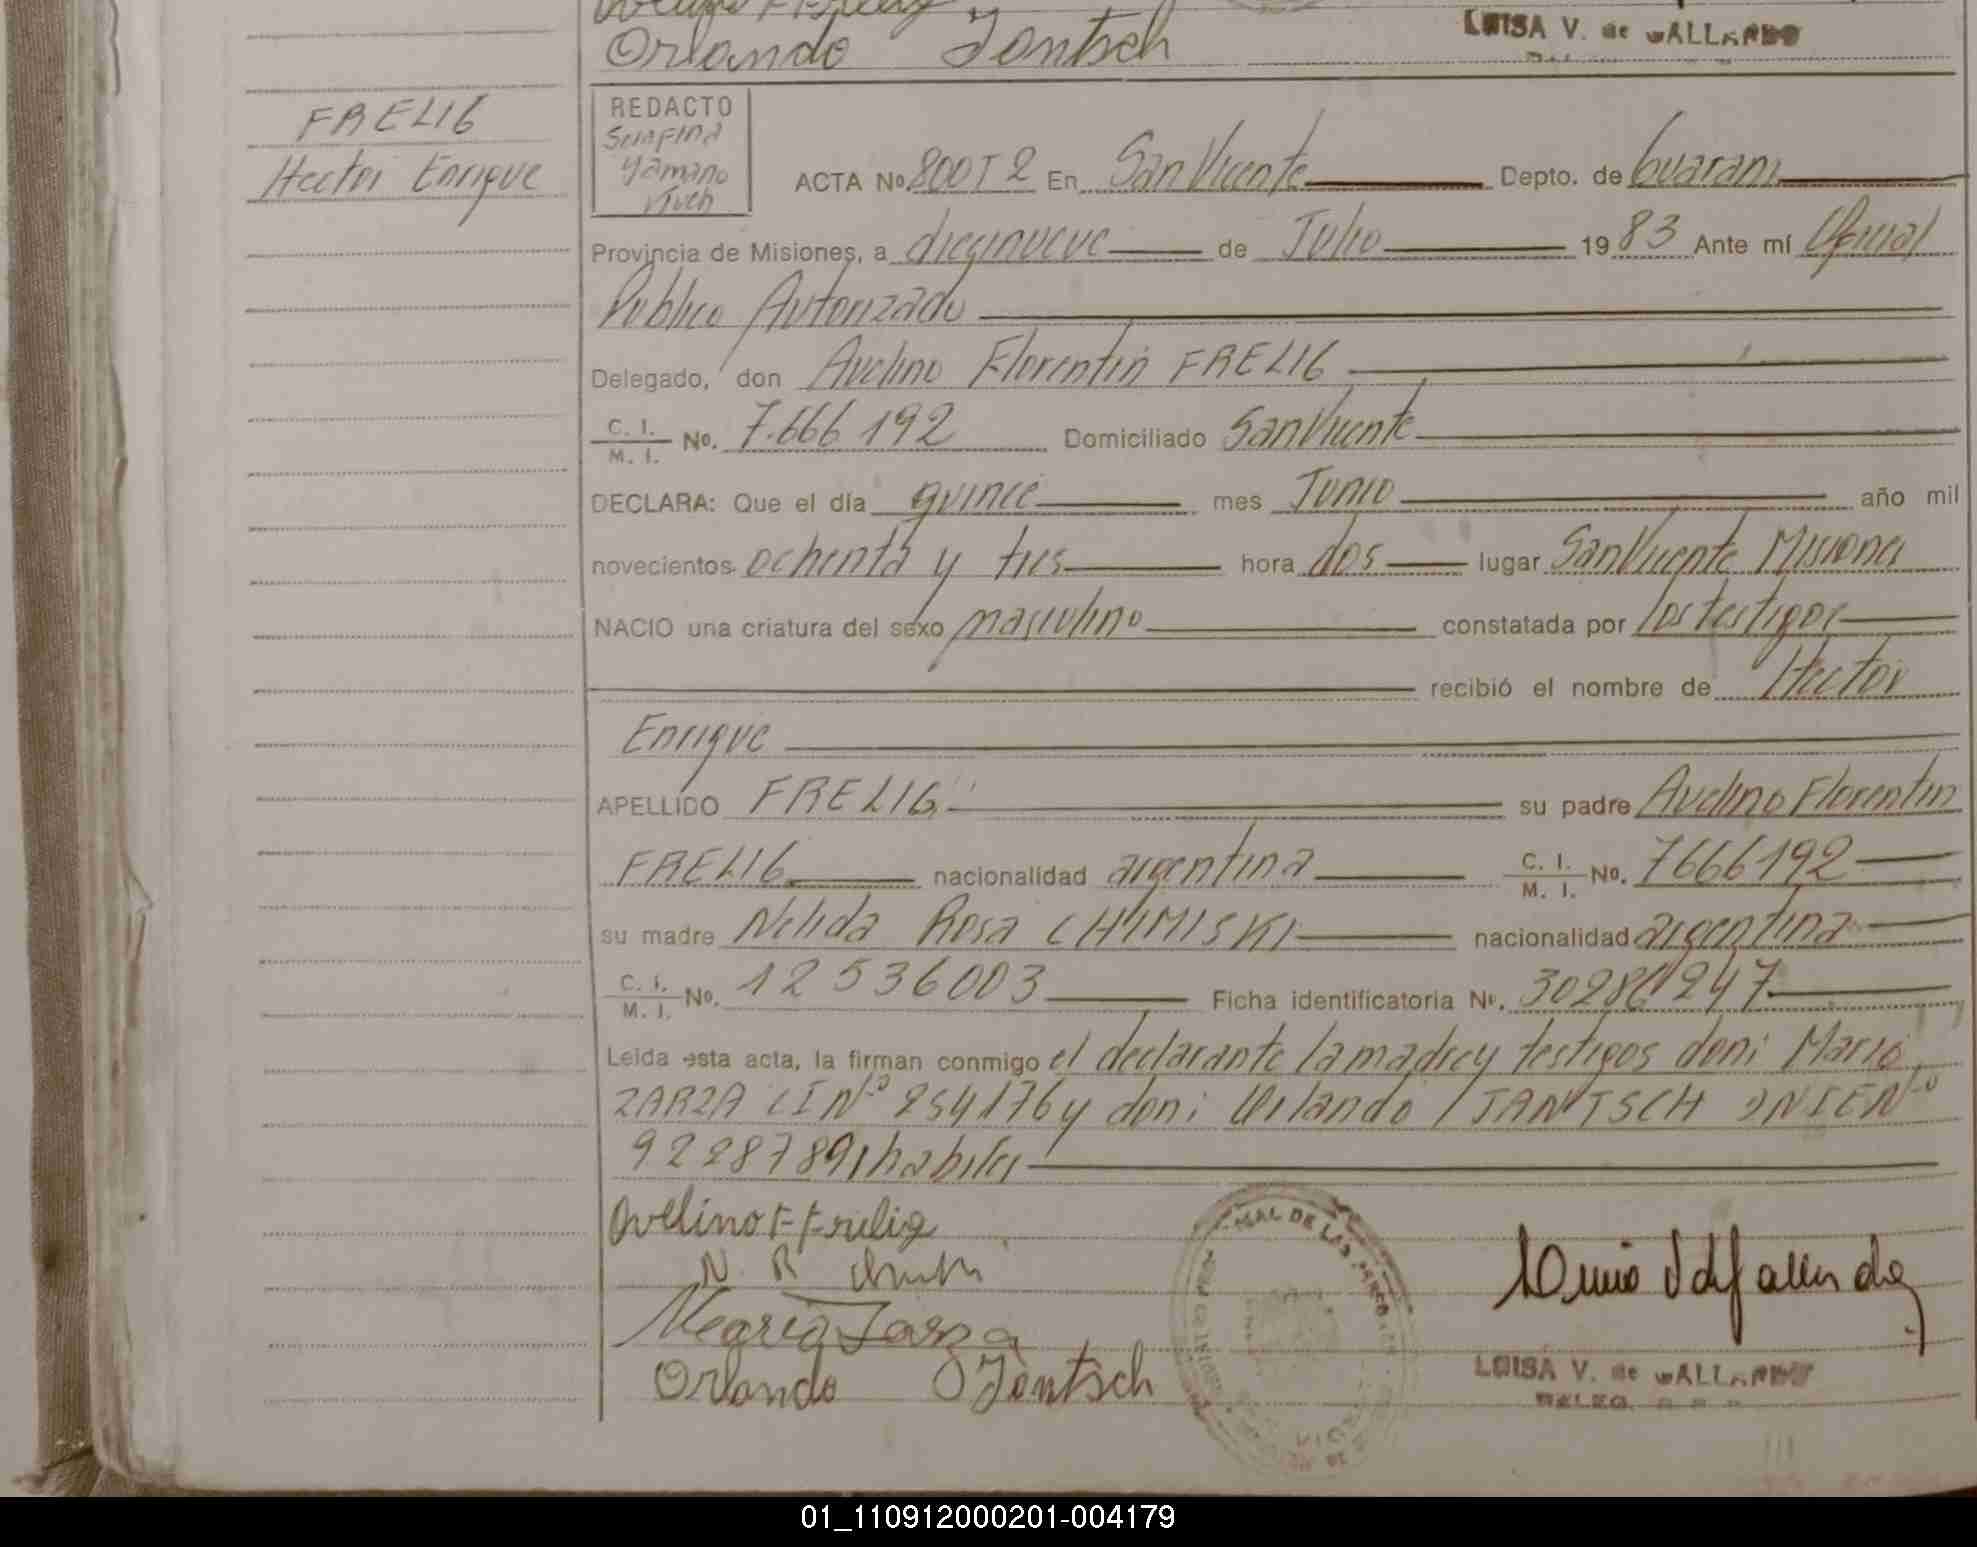 Orlando Jentsch
LUISA V. de GALLARDO
FRELIG
Hector Enrique
REDACTO
Serafina
Yamano
ACTA No. 800 T 2 En San Vicente Depto. de Guarani
Provincia de Misiones, a diecinueve de Julio 1983 Ante mí Oficial
Publico Autorizado
Delegado, don Avelino Florentin FRELIG
C. I.
M. I. No. 7.666 192 Domiciliado San Vicente
DECLARA: Que el día quince mes Junio año mil
novecientos ochenta y tres hora dos lugar San Vicente Misiones
NACIO una criatura del sexo masculino constatada por los testigos
recibió el nombre de Hector
Enrique
APELLIDO FRELIG su padre Avelino Florentin
FRELIG nacionalidad argentina C. I.
M. I. No. 7666192
su madre Nelida Rosa CHIMISKI nacionalidad argentina
C. I.
M. I. No. 12 536003 Ficha identificatoria No. 30286247
Leida esta acta, la firman conmigo el declarante la madre y testigos don: Mario
ZARZA CI Nº 254176 y don: Orlando JANTSCH DNI EN
9228789 habiles
Avelino F Frelig
N. R
Mario Zarza
Orlando Jentsch
MAL DE LAS PERSO
LUISA V. de GALLARDO
DELEG.
01_110912000201-004179